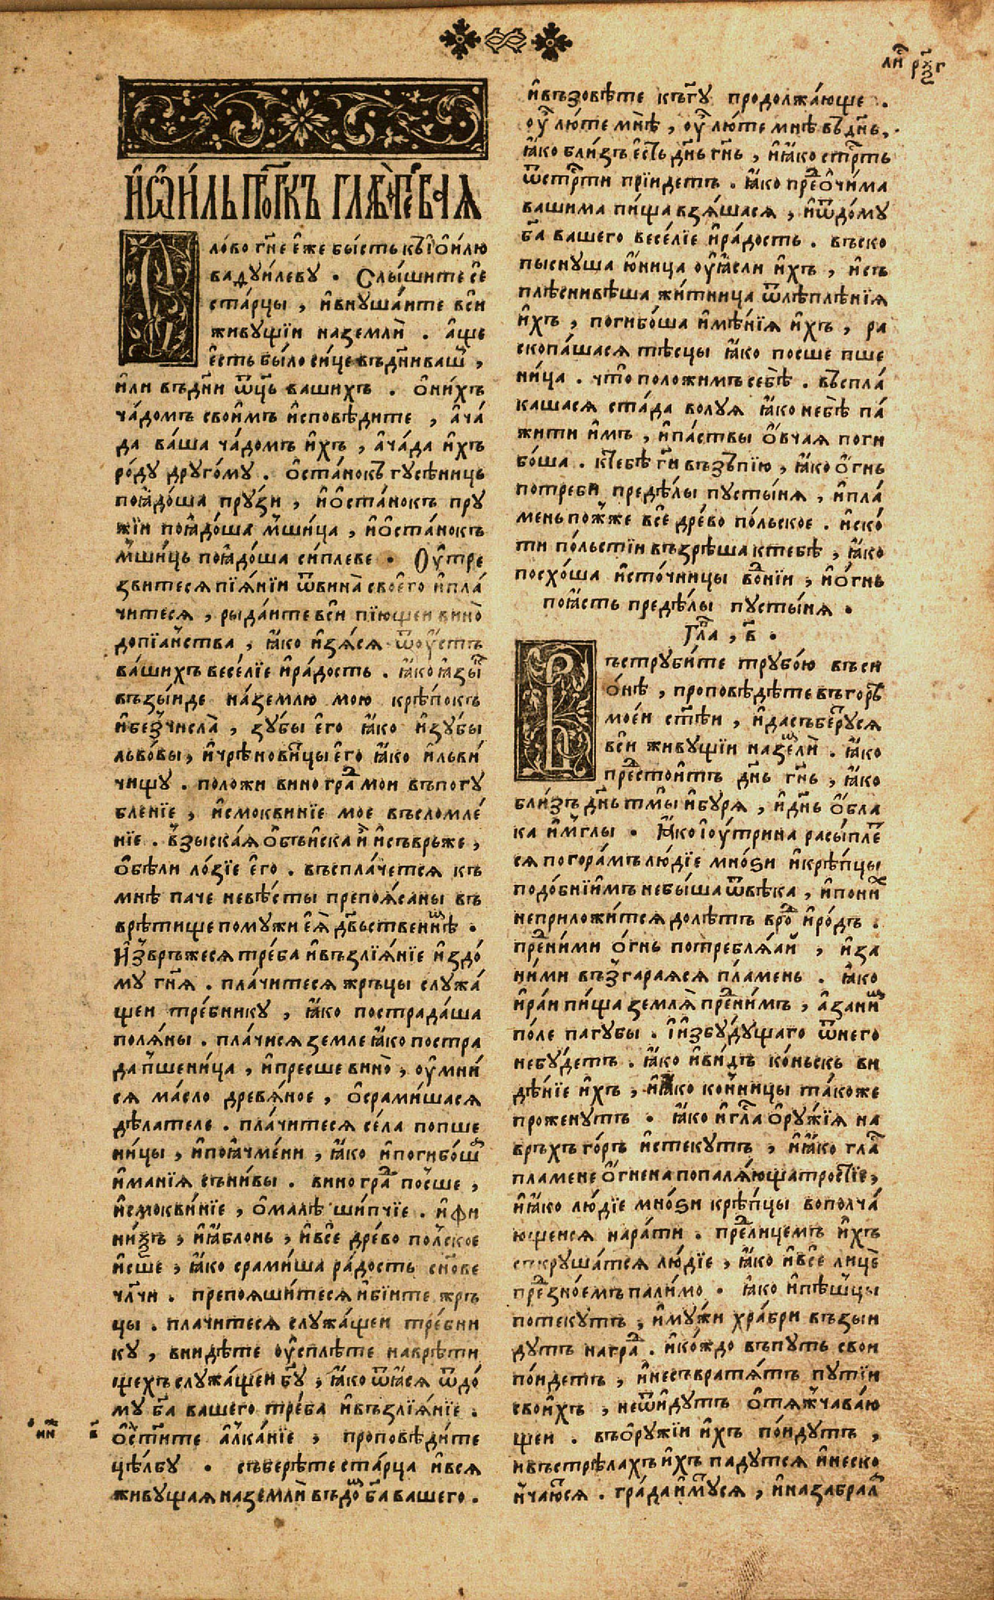 ли҃ рч҃г
и҆ѡи́ль прⷪ҇ркъ глава̀ пе́рваѧ
Сло́во гн҃е є҆́же бы́сть къ і҆ои́лю
вадуи́леву . Слы́шите сѐ
ста́рцы , и҆внуша́ите вси̑
живу́щїи наземлѝ . а҆́ще
є҆́сть бы́ло си́це въдн҃и ва́шѧ ,
и҆лѝ въдн҃и ѡ҆ц҃ъ ва́шихъ . ѻ҆ни́хъ
ча́домъ свои́мъ и҆сповѣ́дите , а҆ча́
да ва́ша ча́домъ и҆́хъ , а҆ча́да и҆́хъ
ро́ду друго́му . ѻ҆ста́нокъ гу́сѣниць
поꙗ҆до́ша пру́зи , и҆ѻ҆ста́нокъ пру́
жїи поꙗ҆до́ша мши́ца , и҆ѻ҆ста́нокъ
мши́ць поꙗ҆до́ша си́плеве . Оу҆тре
звитесѧ пїѧ́нїи ѿвина̀ своего̀ и҆пла́
читесѧ , рыда́ите всѝ пїю́щеи вино̀
допїа́нства , ꙗ҆́ко и҆зѧ́сѧ ѿоу҆́стъ
ва́шихъ весе́лїе и҆ра́дость . ꙗ҆́ко ꙗ҆зы́к
възы́иде на́землю мою̀ крѣ́покъ
и҆без̾числа̀ , зу́бы є҆го̀ ꙗ҆́ко и҆зу́бы
льво́вы , и҆чрѣновицы є҆го̀ ꙗ҆́ко и҆льви́
чищу . положѝ виногра́д мои̑ въпогу
бле́нїе , и҆смокви́нїе моѐ въсломле́
нїе . взыска́ѧ ѻ҆бъи́ска и҆̀ и҆съвръ́же ,
ѻ҆бѣлѝ ло́зїе є҆го̀ . въспла́четсѧ къ
мнѣ̀ па́че невѣ́сты препоѧ́саны въ
врѣ́тище пому́жи є҆ѧ̀ дв҃ьственнѣ̀ .
И҆зврь́жесѧ тре́ба и҆възлїѧ́нїе и҆здо́
му гн҃ѧ . пла́читесѧ жръ́цы служа́
щеи тре́бнику , ꙗ҆́ко пострада́ша
полѧ́ны . пла́чисѧ землѐ ꙗ҆́ко постра
да̀ пшени́ца , и҆пре́сше вино̀ , оу҆мни́
сѧ ма́сло древѧ́ное , ѻ҆срами́шасѧ
дѣ́лателе . пла́читесѧ се́ла попше
ни́цы , и҆поꙗ҆чме́ни , ꙗ҆́ко и҆погибо́шѧ
и҆ма́нїѧ съни́вы . виногра́д по́сше ,
и҆смокви́нїе , ѻ҆малѣ̀ ши́пчїе . и҆фи
ни́къ , и҆ꙗ҆́блонь , и҆всѐ дре́во по́лское
и҆́сше , ꙗ҆́ко срами́ша ра́дость сн҃ове
чл҃чи . препоѧ́шитесѧ и҆бі́ите жръ
цы̀ . пла́читесѧ служа́щеи тре́бни
ку , вни́дѣте оу҆спѣ́те наврѣ́ти
щехъ служа́щеи бг҃у , ꙗ҆́ко ѿꙗ҆́сѧ ѿдо́
му бг҃а ва́шего тре́ба и҆възлїѧ́нїе .
ѻ҆свѧти́те а҆́лка́нїе , пропове́дите
цѣ́лбу . събере́те ста́рца и҆всѧ̀
живу́щаѧ наземлѝ въдо́м бг҃а ва́шего .
и҆възове́те къгд҇у продолжа́юще .
оу҆̀ лю́те мнѣ̀ , оу҆̀ лю́те мнѣ̀ въдн҃ь ,
ꙗ҆́ко бли́зъ є҆́сть дн҃ь гн҃ь , и҆ꙗ҆́ко стр҇ть
ѿстр҇ти прїи́детъ . ꙗ҆́ко пред ѻ҆чи́ма
ва́шима пи́ща взѧ́шасѧ , и҆ѿдо́му
бг҃а ва́шего весе́лїе и҆ра́дость . въско
пы́снуша ю҆́ница оу҆ꙗ҆́сли и҆́хъ , и҆съ
плѣ́снивѣша жи́тница ѿлѣплѣ́нїѧ
и҆́хъ , погибо́ша и҆мѣ́нїѧ и҆́хъ , ра
скопа́шасѧ тѣ́сцы ꙗ҆́ко посшѐ пше
ни́ца . что̀ положи́мъ себѣ̀ . въспла́
кашасѧ ста́да во́луѧ ꙗ҆́ко небѣ̀ па́
жити и҆́мъ , и҆па́ствы ѻ҆́вчаѧ поги
бо́ша . ктебѣ̀ гд҇и възъпїю̀ , ꙗ҆́ко ѻ҆́гнь
потребѝ предѣ́лы пусты́нѧ , и҆пла́
мень пожжѐ всѐ дре́во по́льское . и҆ско́
ти по́льстїи възрѣ́ша ктебѣ̀ , ꙗ҆́ко
посхо́ша и҆сто́чницы во́днїи , и҆ѻ҆́гнь
поꙗ҆́сть предѣ́лы пусты́нѧ .
Гла҃ , в҃ .
Въструби́те трубо́ю въси
ѻ҆́нѣ , проповѣ́дѣте въгорѣ̀
мое́и ст҃ѣи , и҆дасъберу́сѧ
всѝ живу́щїи наземлѝ . ꙗ҆́ко
предстои́тъ дн҃ь гн҃ь , ꙗ҆́ко
бли́зъ дн҃ь тмы̀ и҆бу́рѧ , и҆дн҃ь ѻ҆́бла
ка и҆мглы̀ . Ꙗ҆́ко і҆оу҆́трина расы́пле
сѧ погора́мъ лю́дїе мно́ѕи и҆крѣ́пцы
подо́бнїи и҆́мъ небы́ша ѿвѣ́ка , и҆пони́х
неприложи́тсѧ долѣ́тъ вро́д и҆ро́дъ .
пред ни́ми ѻ҆́гнь потреблѧ́ай , и҆за
ни́ми възгара́ѧсѧ пла́мень . ꙗ҆́ко
и҆ра́и пи́ща землѧ̀ пред ни́мъ , а҆зани́м
по́ле па́губы . і҆ и҆збу́дущаго ѿнего̀
небу́детъ . ꙗ҆́ко и҆ви́дъ ко́ньскъ ви
дѣ́нїе и҆́хъ , и҆ꙗ҆́ко ко́нницы та́коже
проже́нутъ . ꙗ҆́ко и҆гла́с ѻ҆ру́жїѧ на
връхъ го́ръ и҆стеку́тъ , и҆ꙗ҆́ко гла́с
пла́мене ѻ҆́гнена попалѧ́юща тро́стїе ,
и҆ꙗ҆́ко лю́дїе мно́ѕи крѣ́пцы вополча́
ющеисѧ нара́ти . пред лице́мъ и҆́хъ
съкруша́тсѧ лю́дїе , ꙗ҆́ко и҆всѐ лицѐ
пред зно́емъ пали́мо . ꙗ҆́ко и҆пѣ́шцы
потеку́тъ , и҆му́жи хра́бри възы́и
дутъ награ́д . и҆ко́ждо въпу́ть свои̑
по́идетъ , и҆несъвратѧ́тъ пути̑и
свои́хъ , неѿи́дутъ ѻ҆тѧжчава́ю
щеи . въѻ҆ру́жїи и҆́хъ по́идутъ ,
ивъстрѣ́лахъ и҆́хъ паду́тсѧ и҆неско
нча́ютсѧ . гра́да и҆́мутсѧ , и҆назабра́л